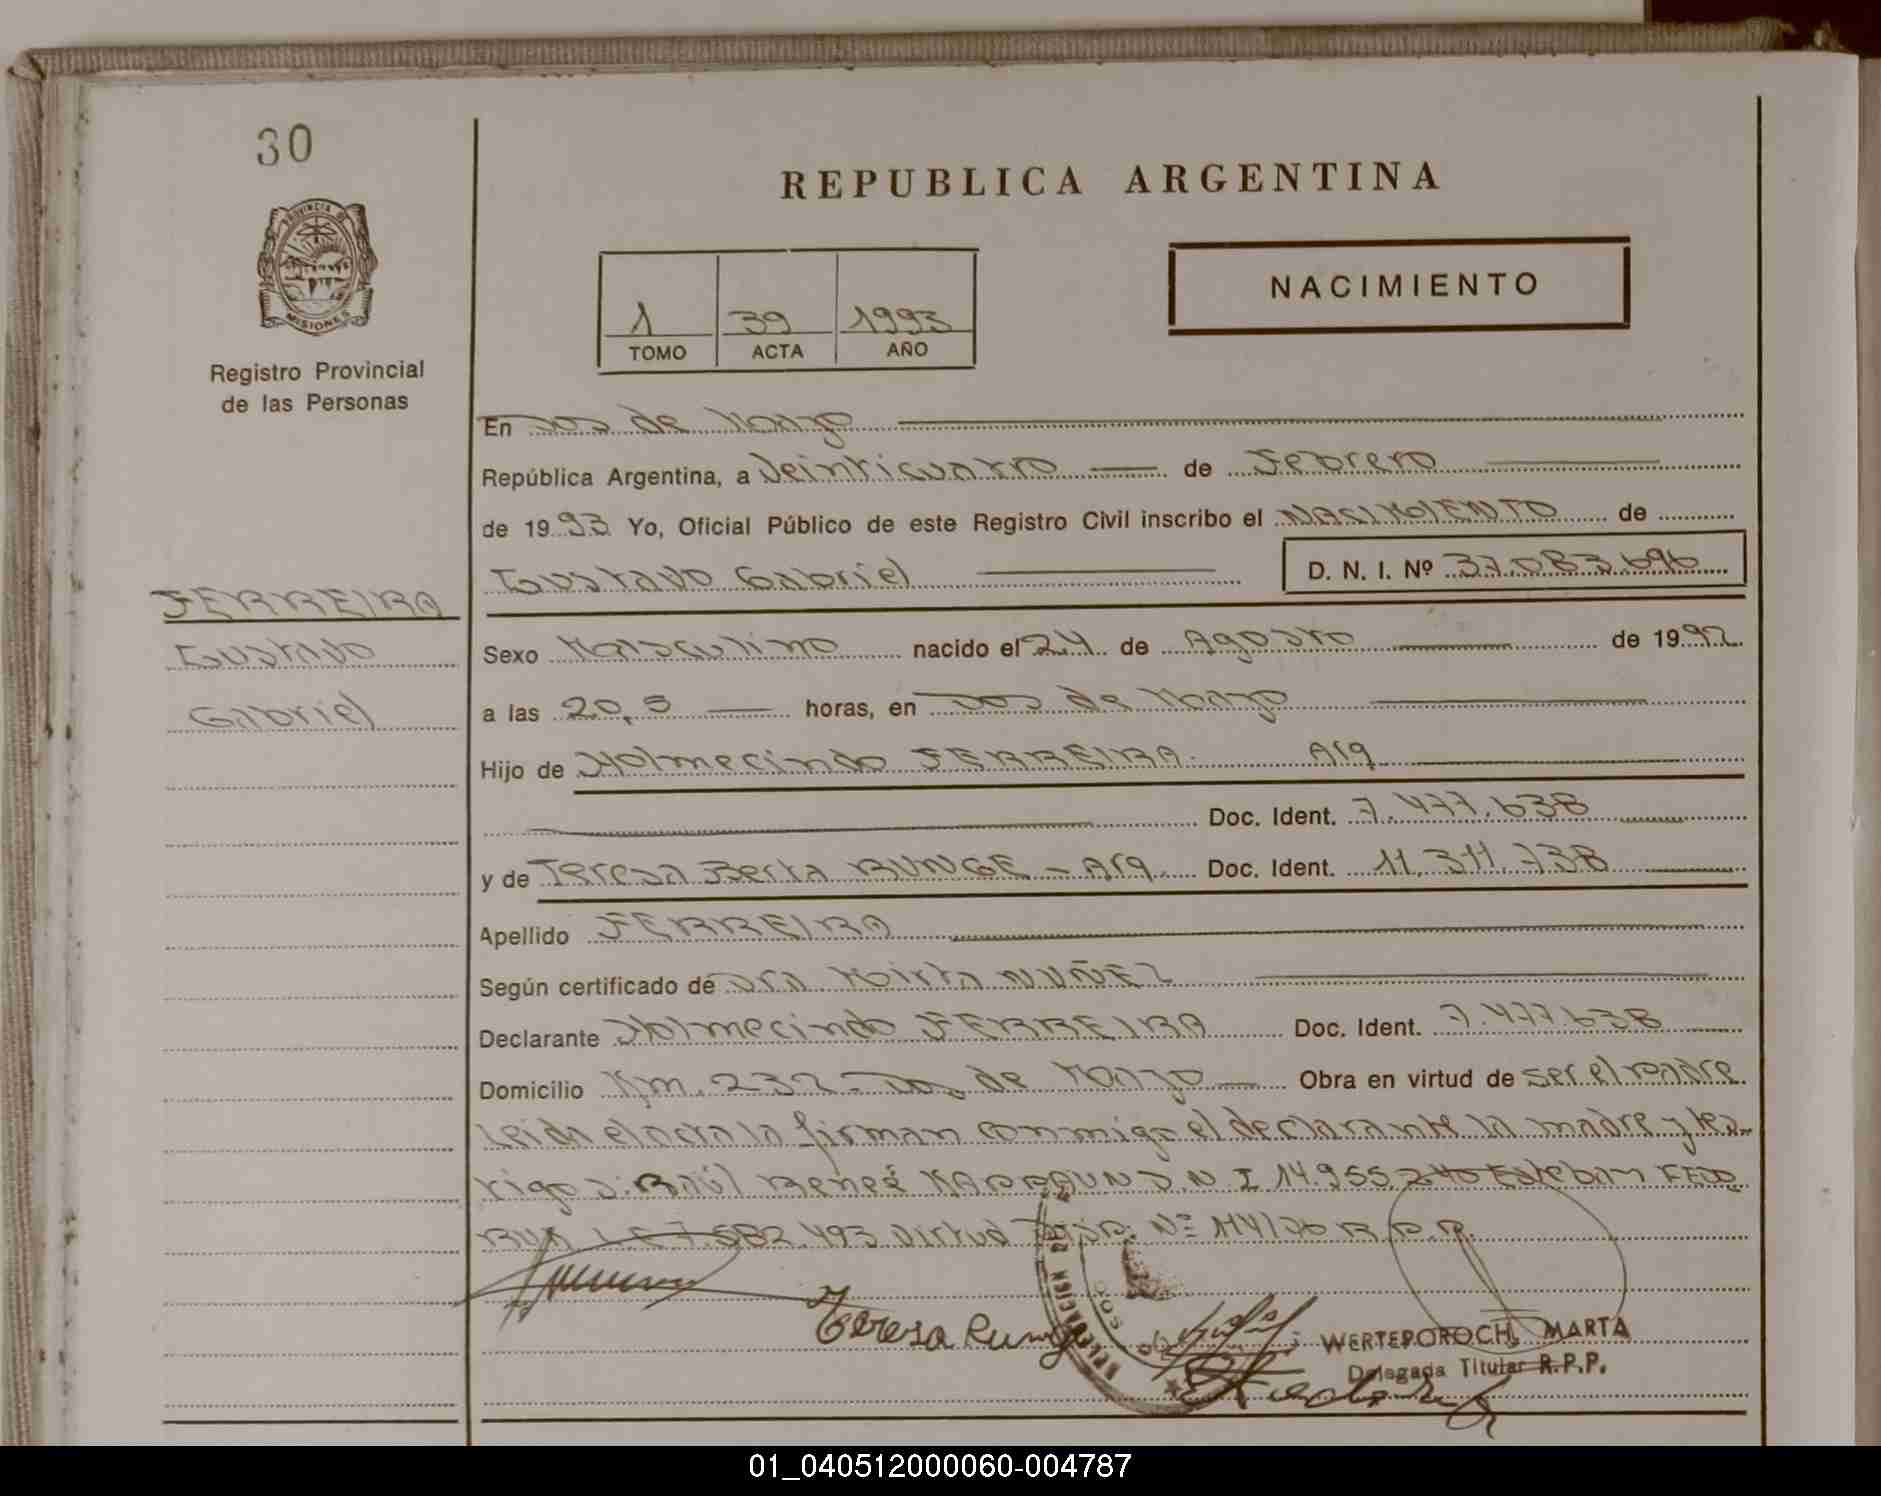 30
REPUBLICA ARGENTINA
NACIMIENTO
1 39 1993
TOMO ACTA AÑO
PROVINCIA DE
MISIONES
Registro Provincial
de las Personas
En Dos de Mayo
República Argentina, a Veinticuatro de Febrero
de 1993 Yo, Oficial Público de este Registro Civil inscribo el NACIMIENTO de
Gustavo Gabriel D. N. I. Nº 37.083.696
FERREIRA
Gustavo
Gabriel
Sexo Masculino nacido el 24 de Agosto de 1992
a las 20,5 horas, en Dos de Mayo
Hijo de FERREIRA. Arg
Doc. Ident. 7.477.638
y de Teresa Berta RUNGE - Arg. Doc. Ident. 11.311.738
Apellido FERREIRA
Según certificado de Dra Mirta NUÑEZ
Declarante FERREIRA Doc. Ident. 7.477.638
Domicilio Km. 232 - Dos de Mayo Obra en virtud de ser el padre
Leida el acta la firman conmigo el declarante la madre y tes-
tigos: Raúl René D.N.I 14.955.240 Esteban
7.582.493 virtud Disp. Nº 114/70 R.P.P.
Teresa Runge
WERTEPOROCH, MARTA
Delegada Titular R.P.P.
01_040512000060-004787